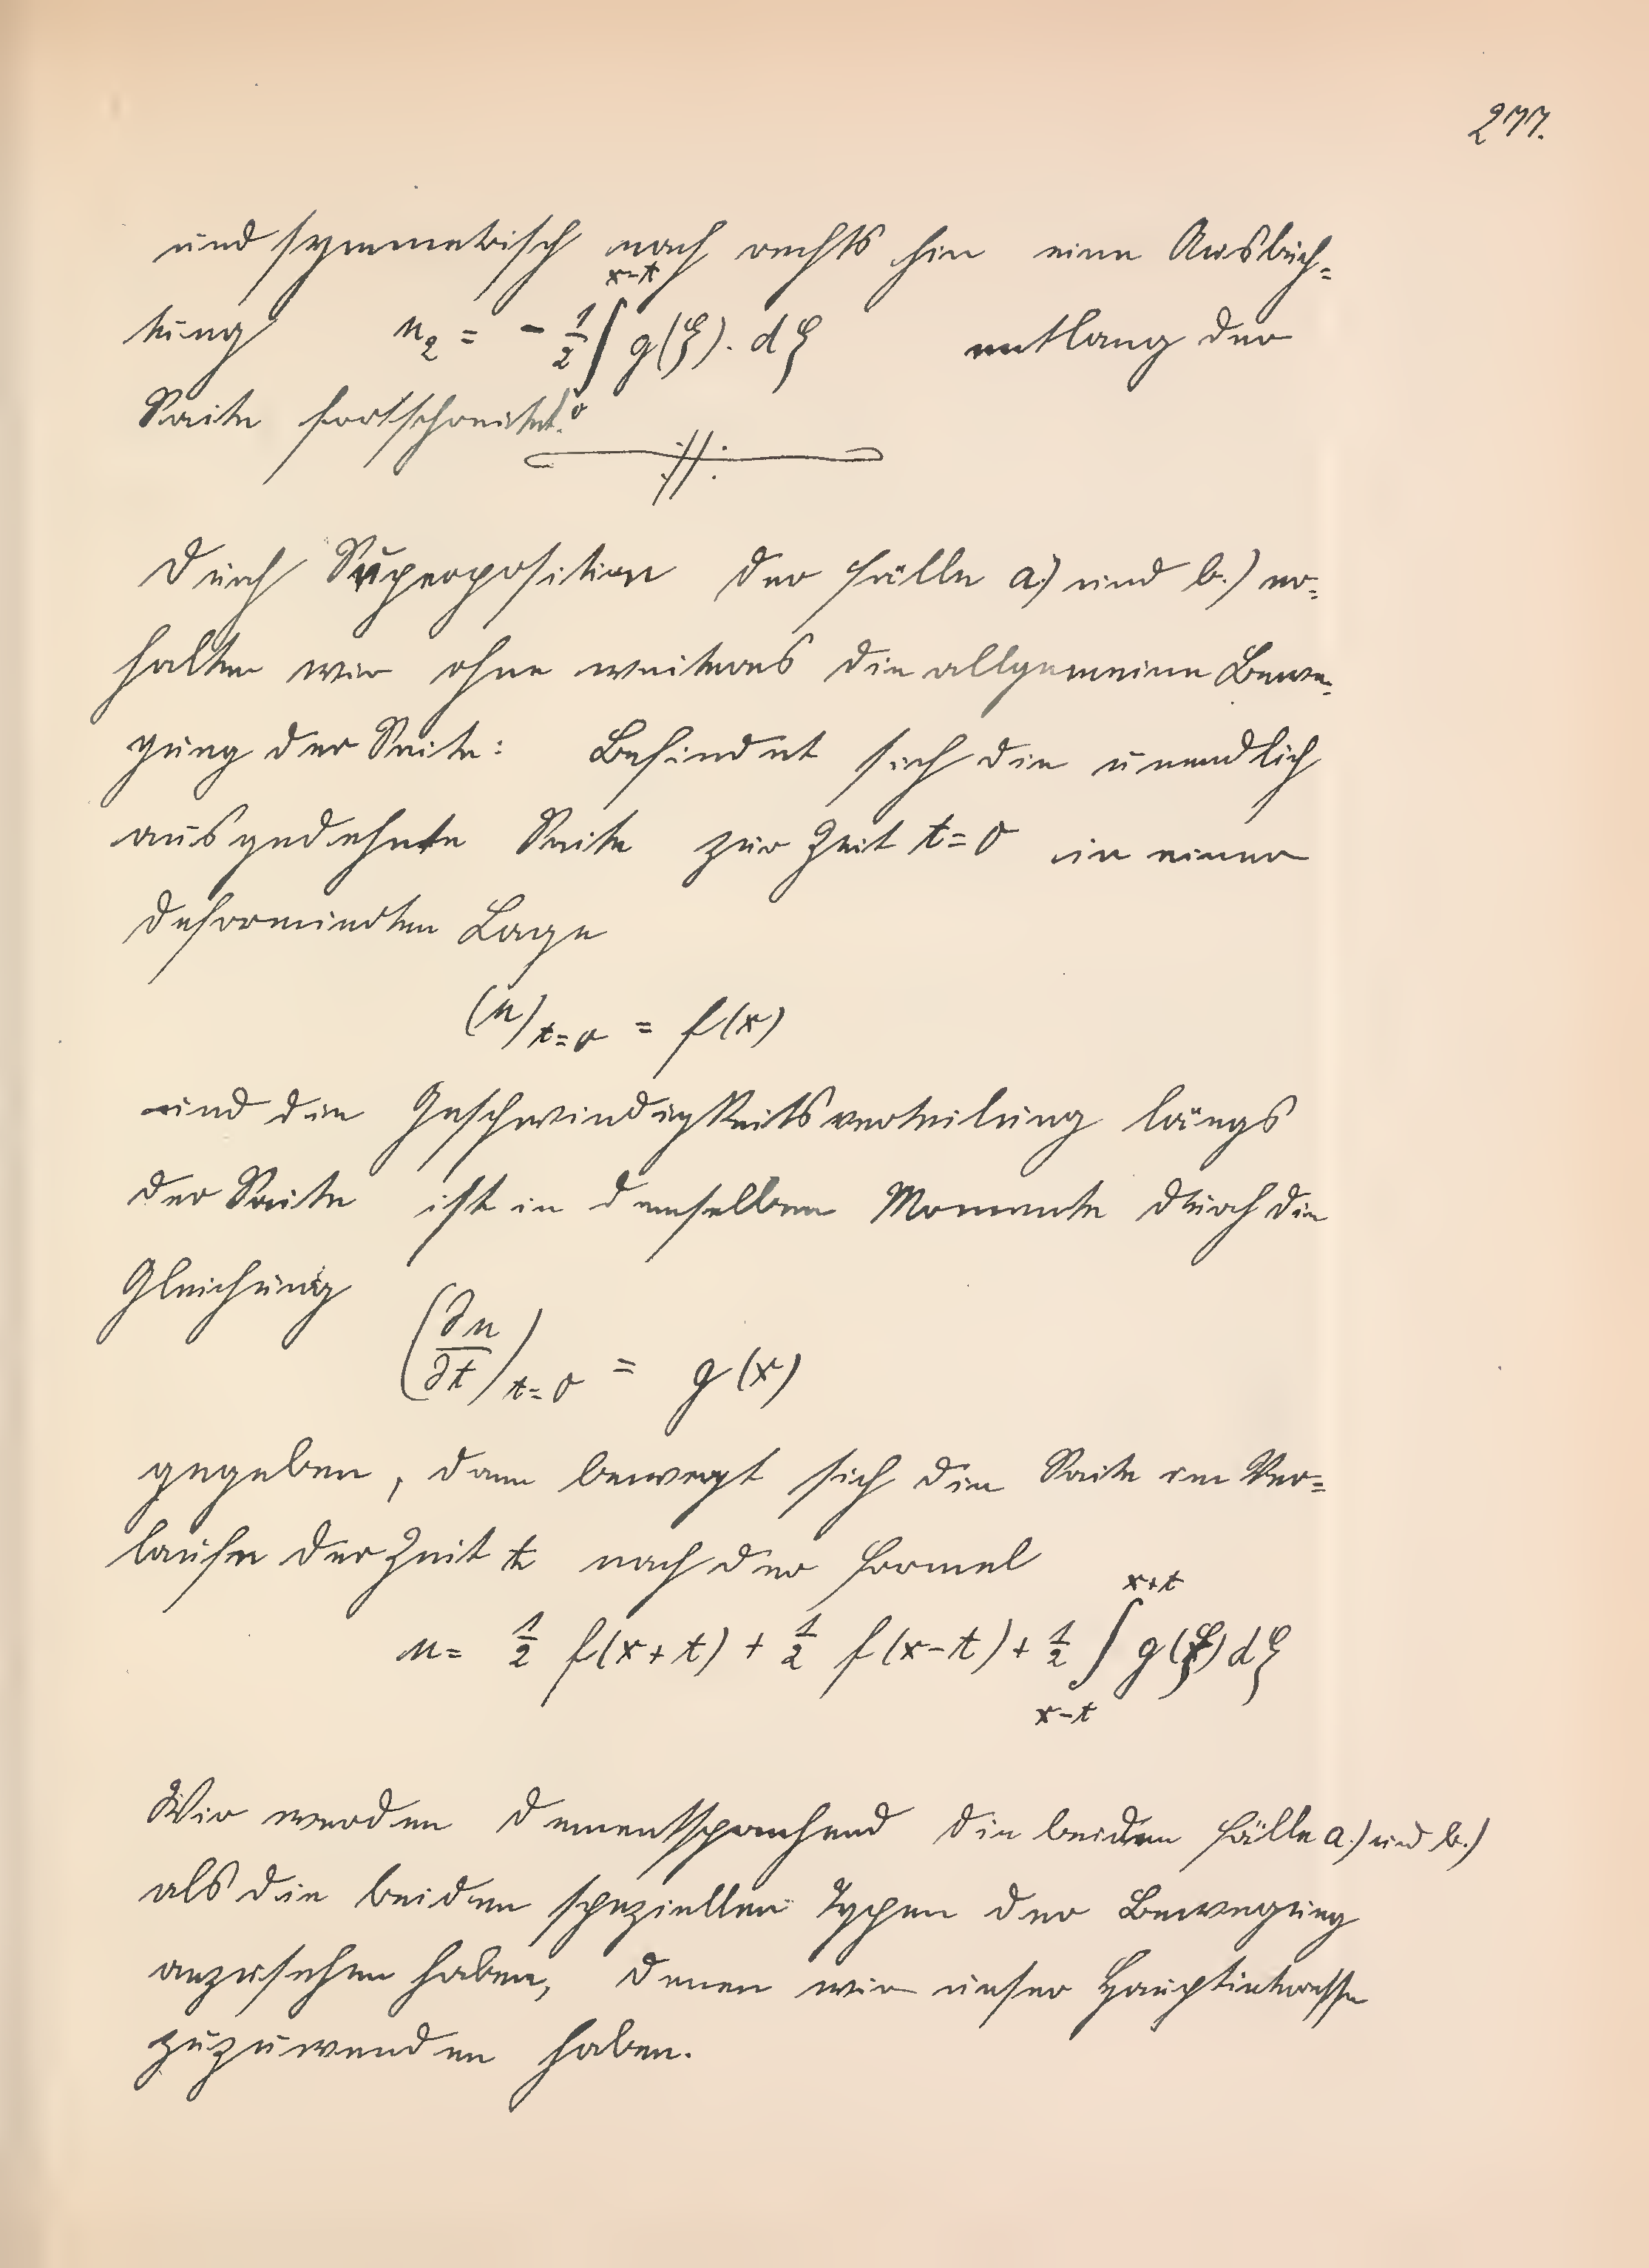 277.
und symmetrisch nach rechts hin eine Ausbuch=
tung u₂ = - 1/2 ∫₀^{x-t} g(ξ). dξ entlang der
Saite fortschreitet.
Durch Superposition der Fälle a.) und b.) er=
halten wir ohne weiteres die allgemeine Bewe=
gung der Saite: Befindet sich die unendlich
ausgedehnte Saite zur Zeit t=0 in einer
deformierten Lage
(u)_{t=0} = f(x)
und die Geschwindigkeitsverteilung längs
der Saite ist in demselben Momente durch die
Gleichung
(∂u/∂t)_{t=0} = g(x)
gegeben, dann bewegt sich die Saite im Ver=
laufe der Zeit t nach der Formel
u = 1/2 f(x+t) + 1/2 f(x-t) + 1/2 ∫_{x-t}^{x+t} g(ξ) dξ
Wir werden dementsprechend die beiden Fälle a.) und b.)
als die beiden speziellen Typen der Bewegung
anzusehen haben, denen wir unser Hauptinteresse
zuzuwenden haben.